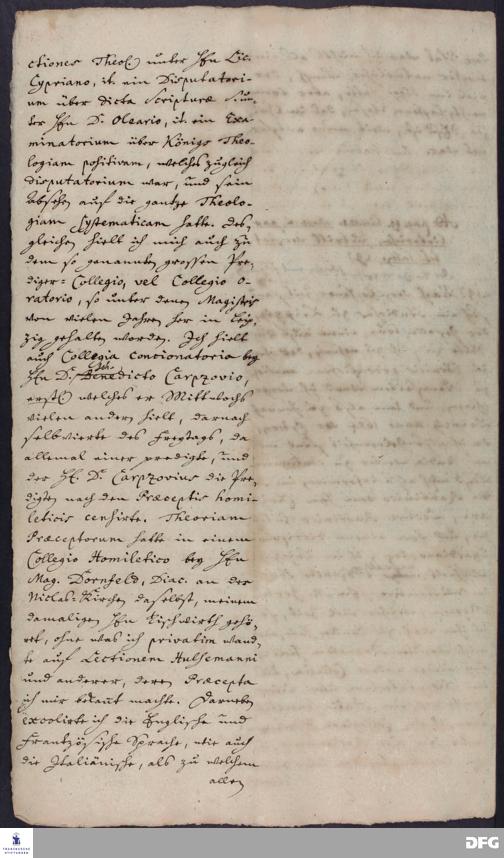 ctiones Theol. unter Hn Lic.
Cypriano, it. ein Disputatori-
um über dicta Scripturæ
ter Hn D. Oleario, it. ein Exa-
minatorium über Königs Theo-
logiam positivam, welches zugleich
disputatorium war, und sein
Absehen auf die gantze Theolo-
giam Systematicam hatte. Des-
gleichen hielt ich mich auch zu
dem so genannten grossen Pre-
diger-Collegio, vel Collegio O-
ratorio, so unter denen Magistris
von vielen Jahren her in Leip-
zig gehalten worden. Ich hielt
auch Collegia concionatoria bey
Hn D. Benedicto Carpzovio,
erstl. welches er Mittwochs
vielen andern hielt, darnach
selbvierte des Freytags, da
allemal einer predigte, und
der H. D. Carpzovius die Pre-
digten nach den Præceptis homi-
leticis censirte. Theoriam
Præceptorum hatte in einem
Collegio Homiletico bey Hn
Mag. Dornfeld, Diac. an der
Niclas-Kirchen daselbst, meinem
damaligen Hn Tischwirth gehö-
ret, ohne was ich privatim wand-
te auf Lectionem Hulsemanni
und anderer, deren Præcepta
ich mir bekant machte. Darneben
excolirte ich die Englische und
Frantzösische Sprache, wie auch
die Italiänische, als zu welchem
allen
FRANCKESCHE
STIFTUNGEN
DFG